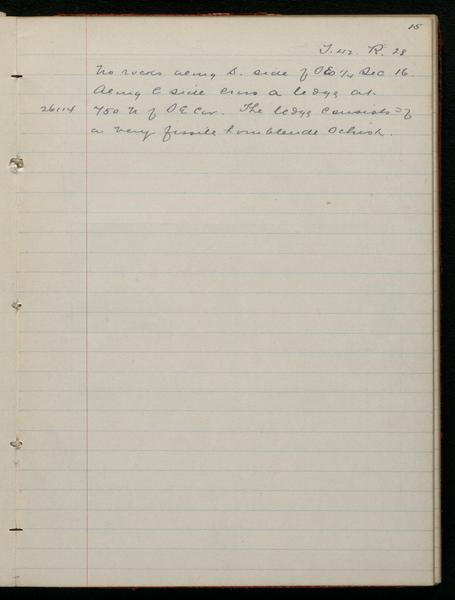 15
T. 42. R. 28
No rocks along S. side of SE 1/4 Sec 16.
Along E side cross a ledge at
26114 750 N of SE Cor. The ledge consists of
a very fissile hornblende Schist.